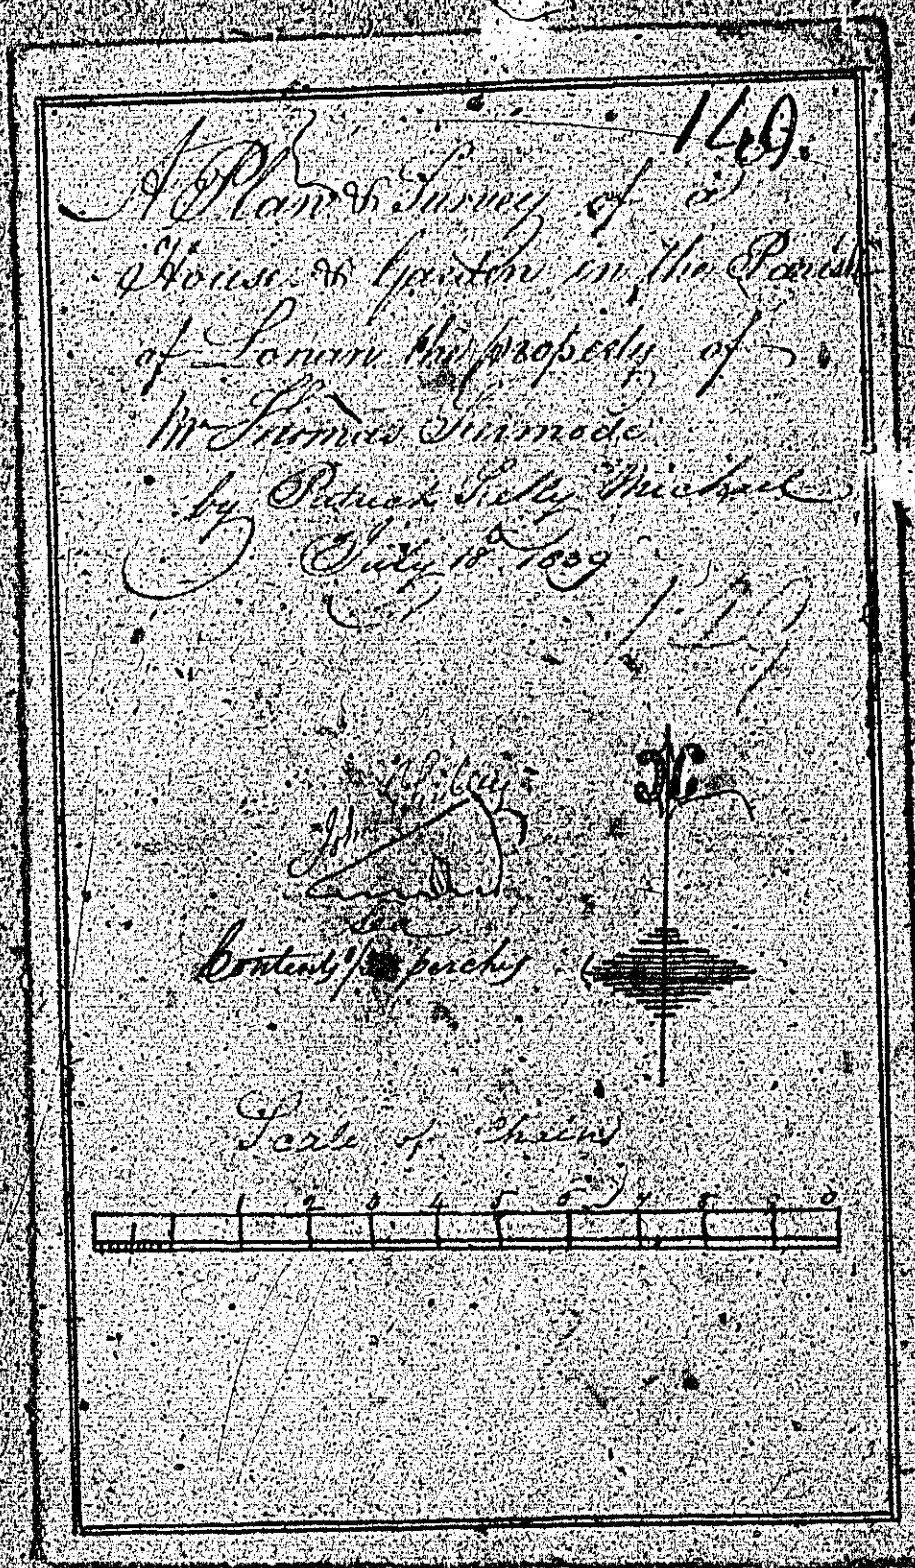 149.
A Plan & Survey of a
House & Garden in the Parish
of Lonan the property of
Mr Thomas Kinmode
by Patrick Kelly Michael
July 18th 1839
Sea
Contents perches
Scale of Chains
1 2 3 4 5 6 7 8 9 0